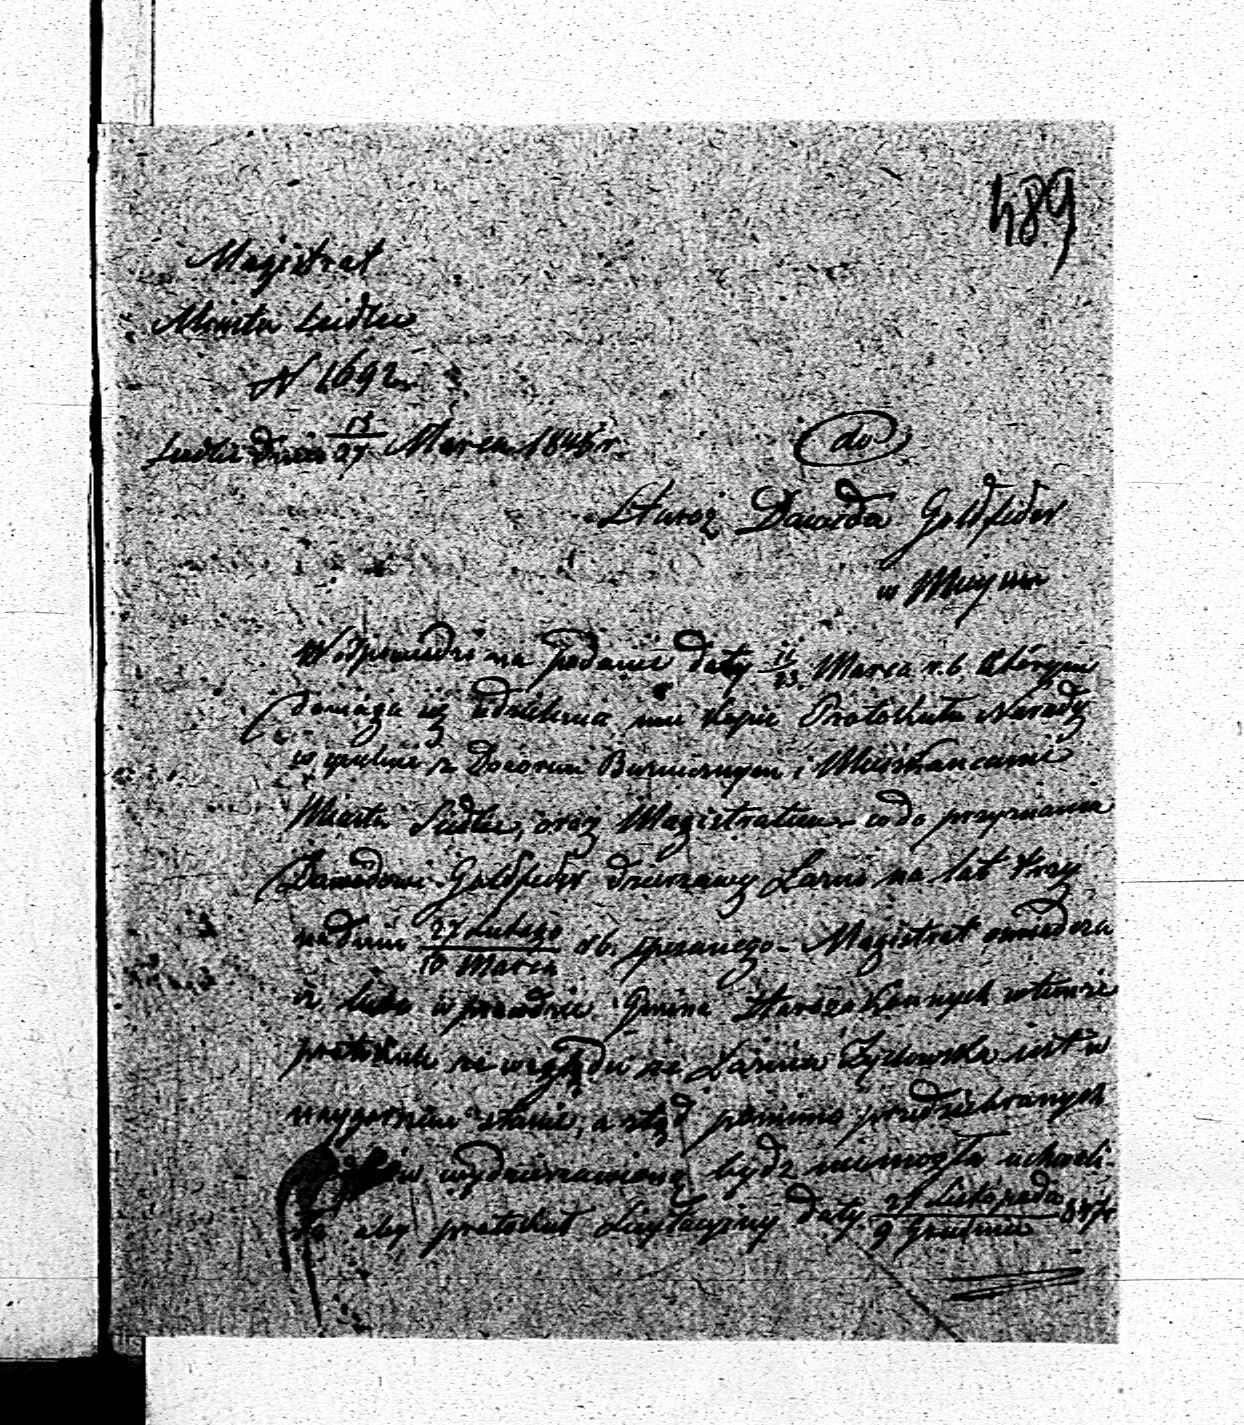 489
Magistrat
Miasta Siedlce
N 1692
Siedlce Dnia 15/27 Marca 184 r.
do
Staroz Dawida Goldfeder
w Miejscu
W odpowiedzi na podanie daty 11/23 Marca r.b. którym
domaga się udzielenia mu kopii Protokułu Narady
wspólnie z Dozorem Bożniczym i Mieszkańcami
Miasta Siedlec, oraz Magistratem co do przyznania
Dawidowi Goldfeder dzierzawy Łazni na lat trzy
na dniu 27 Lutego/10 Marca rb. spisanego - Magistrat oświadcza
iż lubo w prawdzie Gmina Starozakonnych w temże
protokule ze względu że Łaznia Żydowska jest w
najgorszém stanie, a ztąd pomimo przedsiebranych
wydzierzawioną bydz niemogła uchwali-
ła aby protokuł Licytacyjny daty 27 Listopada/9 Grudnia 847 r